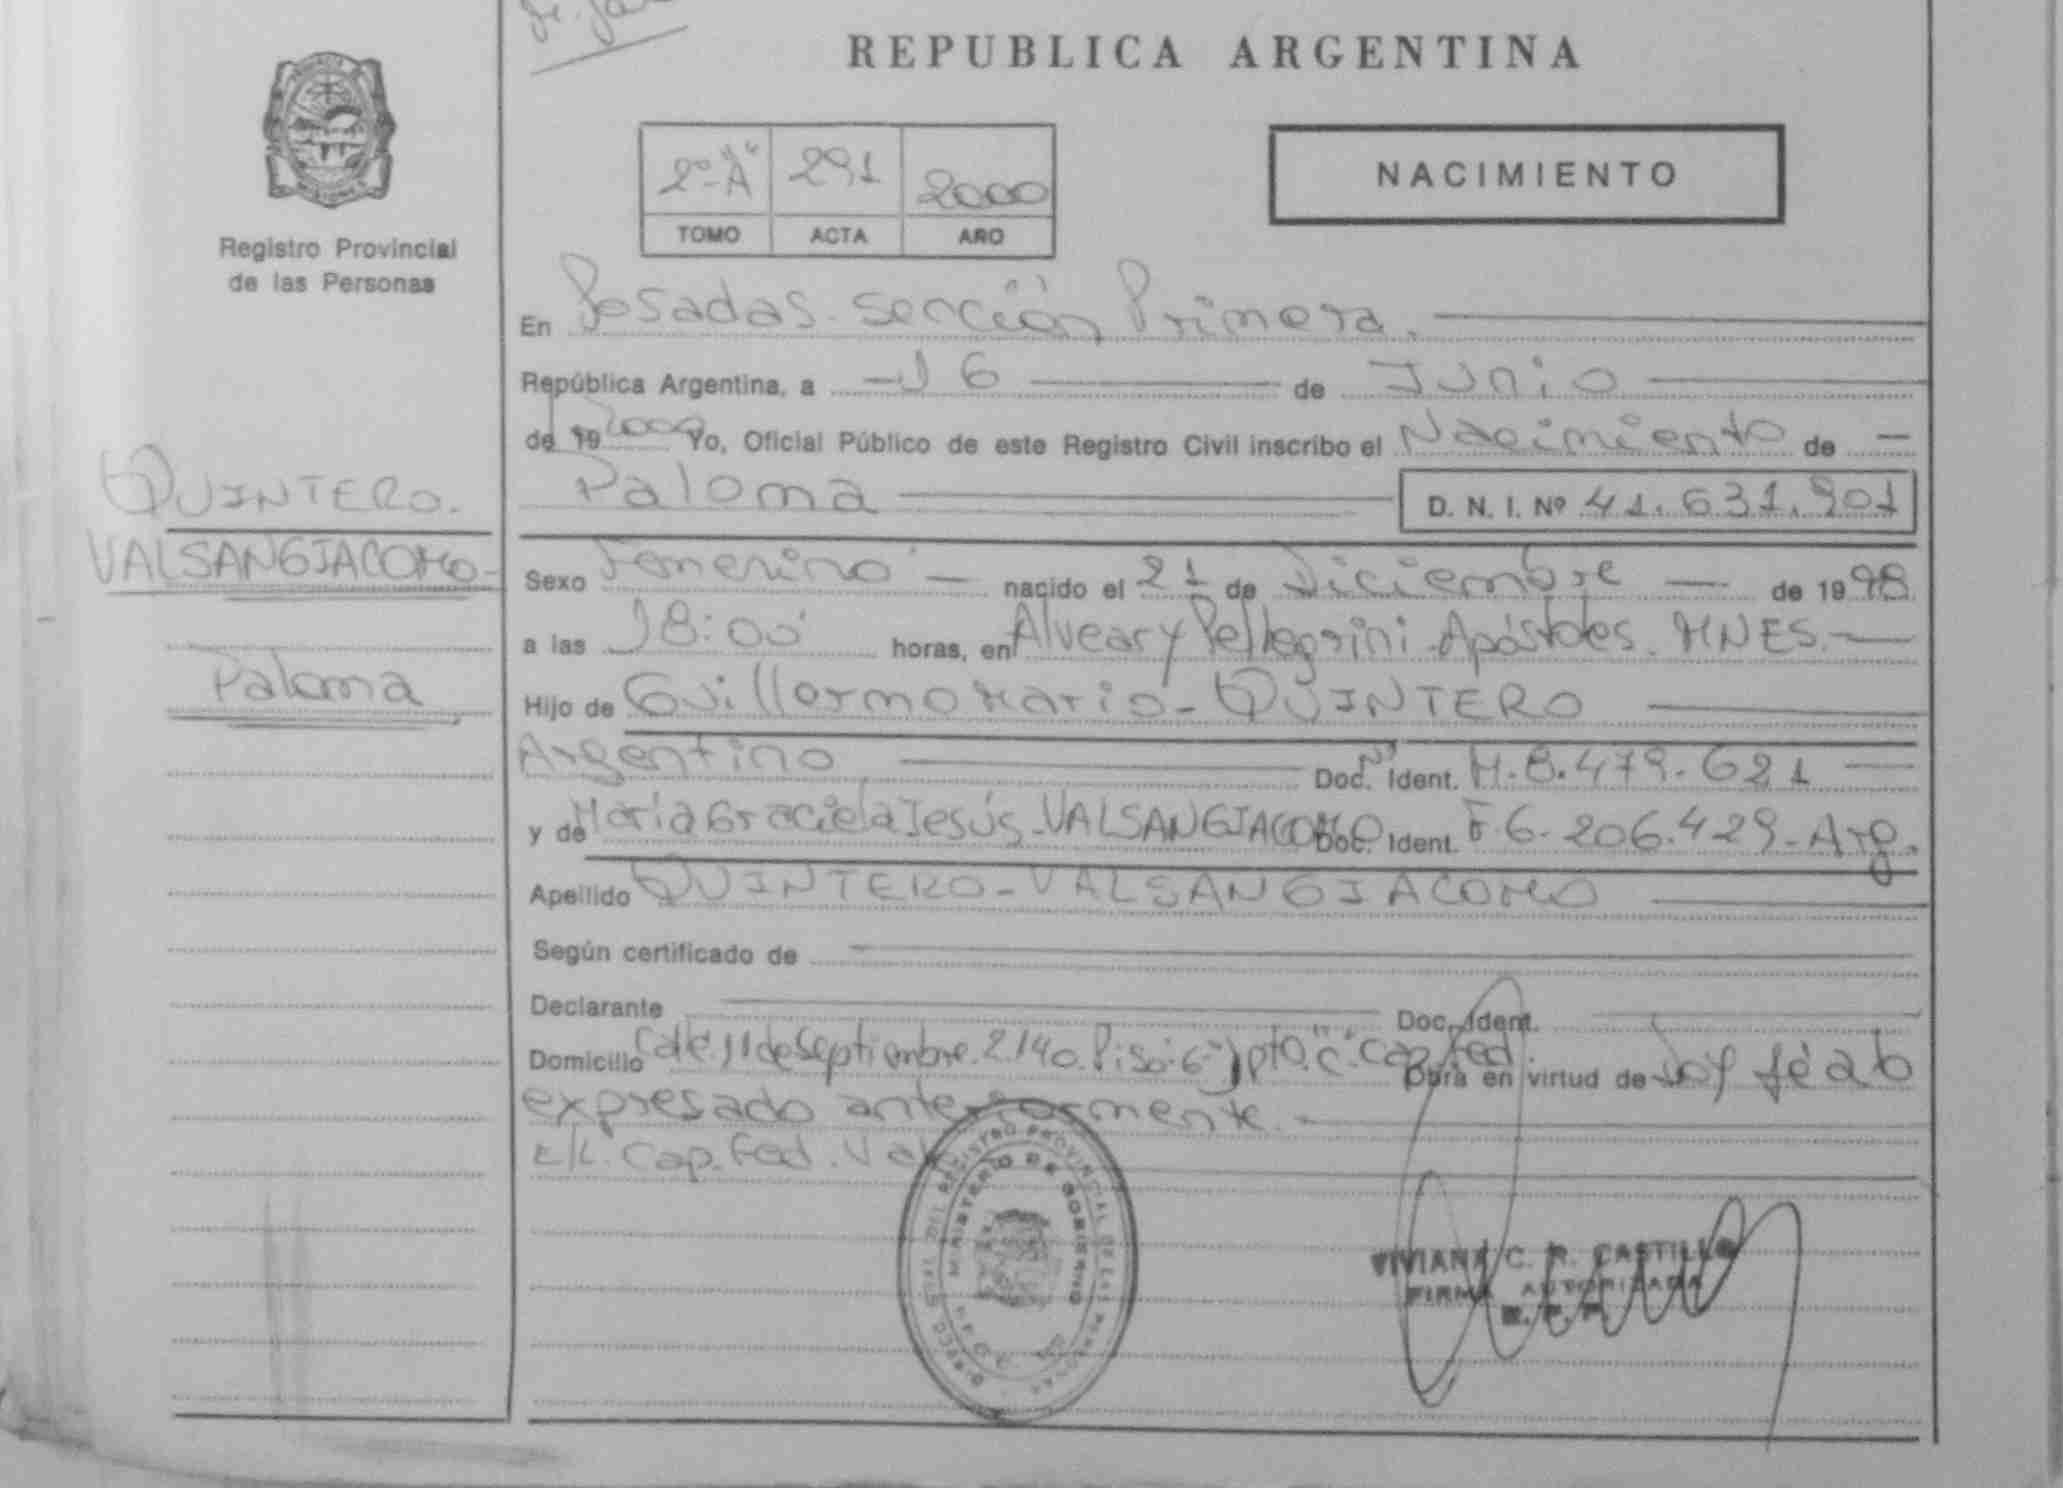 REPUBLICA ARGENTINA
Registro Provincial
de las Personas
2º "A" 291 2000
TOMO ACTA AÑO
NACIMIENTO
En Posadas - Sección Primera.
República Argentina, a 16 de Junio
de 19 2000 Yo, Oficial Público de este Registro Civil inscribo el Nacimiento de
Paloma D. N. I. Nº 41.631.901
QUINTERO-
VALSANGIACOMO-
Paloma
Sexo Femenino nacido el 21 de Diciembre de 1998
a las 18:00 horas, en Alvear y Pellegrini - Apóstoles. MNES.
Hijo de Guillermo Mario - QUINTERO
Argentino Doc. Ident. M. 8.479.621
y de María Graciela Jesús - VALSANGIACOMO Doc. Ident. F. 6.206.429 - Arg.
Apellido QUINTERO - VALSANGIACOMO
Según certificado de
Declarante Doc. Ident.
Domicilio Calle 11 de Septiembre 2140. Piso 6º Dpto. "C" Cap. Fed. Obra en virtud de Doy fé a lo
expresado anteriormente.
E/L. Cap. Fed. Vale
DEL REGISTRO PROVINCIAL DE LAS PERSONAS
MINISTERIO DE GOBIERNO
VIVIANA C. R. CASTILLO
FIRMA AUTORIZADA
R. P. P.